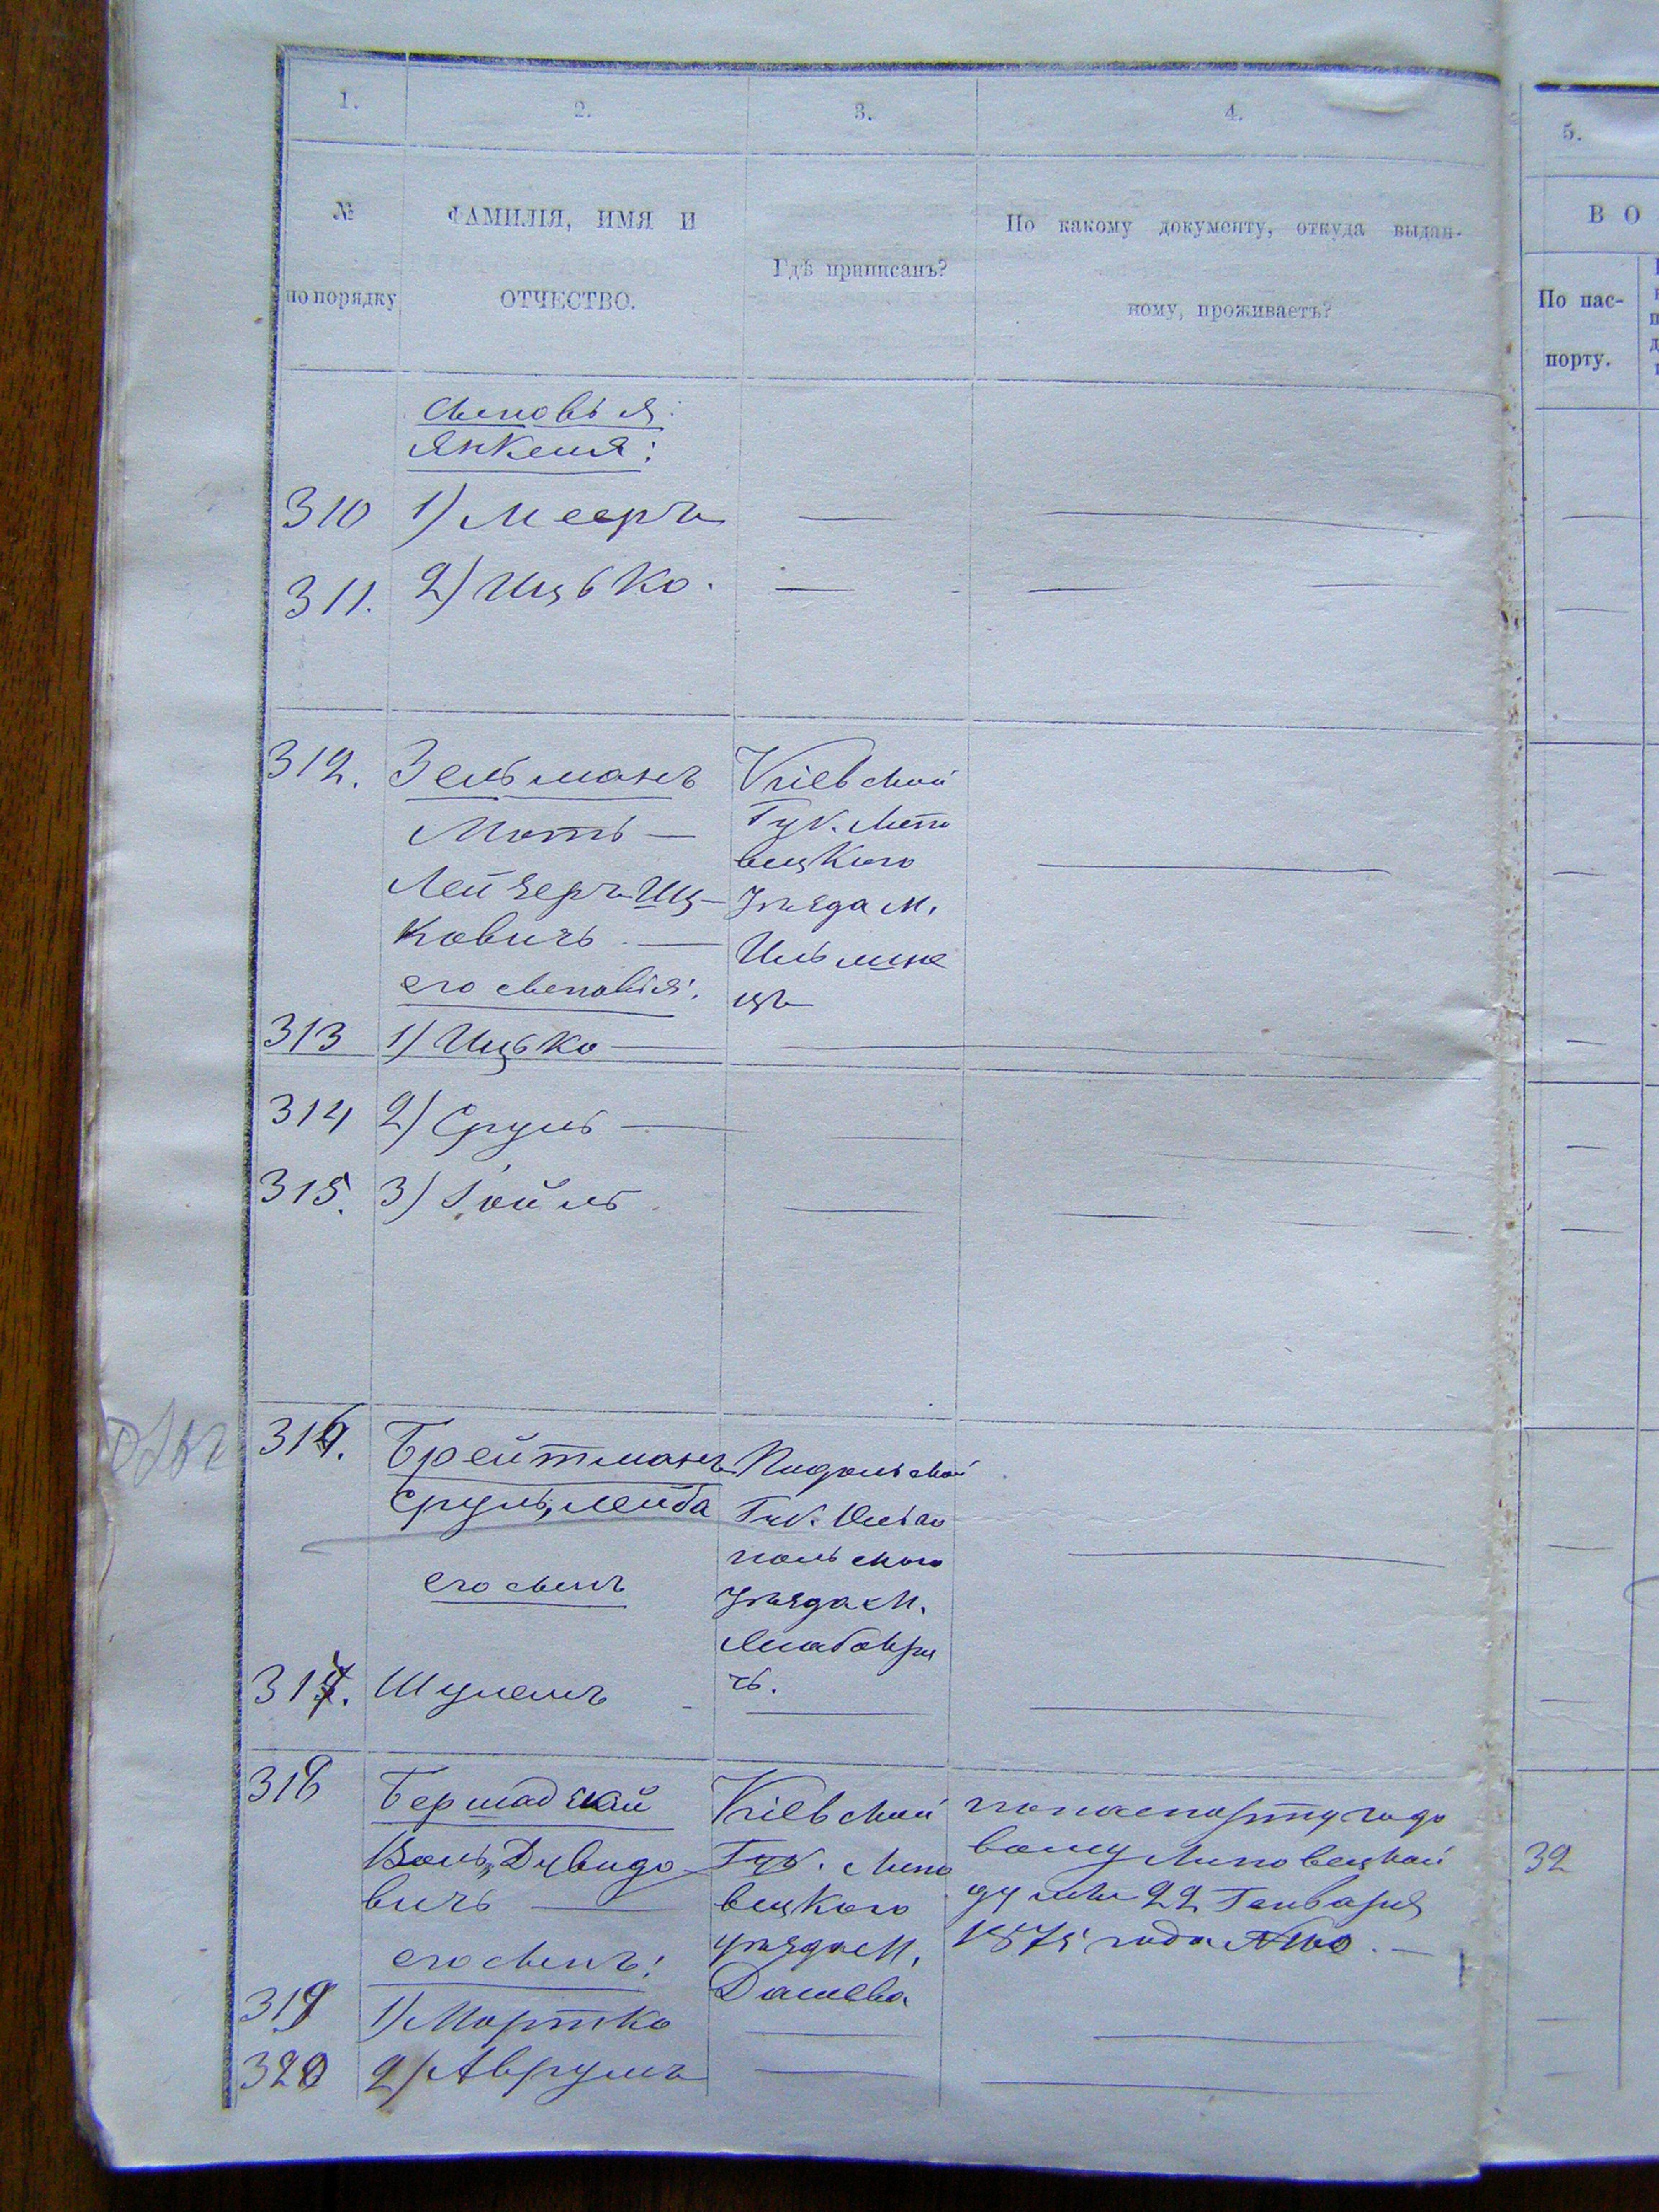 1. 2. 3. 4. 5.
№ по порядку
ФАМИЛІЯ, ИМЯ И
ОТЧЕСТВО.
Гдѣ приписанъ?
По какому документу, откуда выдан-
ному, проживаетъ?
В О
По пас-
порту.
сыновья
Янкеля:
310 1) Мееръ — —
311. 2) Ицько. — —
312. Зельманъ
Моть —
Лейзеръ Иц-
ковичъ. —
его сыновья:
Кіевской
Губ. Липо
вецкаго
уѣзда м.
Ильинс
цъ
313 1) Ицько —
314 2) Сруль —
315. 3) Гойль
316. Брейтманъ
Сруль, лейба
его сынъ
Подольской
Губ. Ольго
польскаго
уѣзда м.
чь.
317. Шулемъ
318 Бершадскій
Воль, Дувидо
вичъ —
его сынъ:
Кіевской
Губ. Липо
вецкаго
уѣзда м.
Дашева
по паспорту годо
вому Липовецкой
думы 22 Генваря
1875 года №100. —
32
319 1) Мортко
320 2) Аврумъ